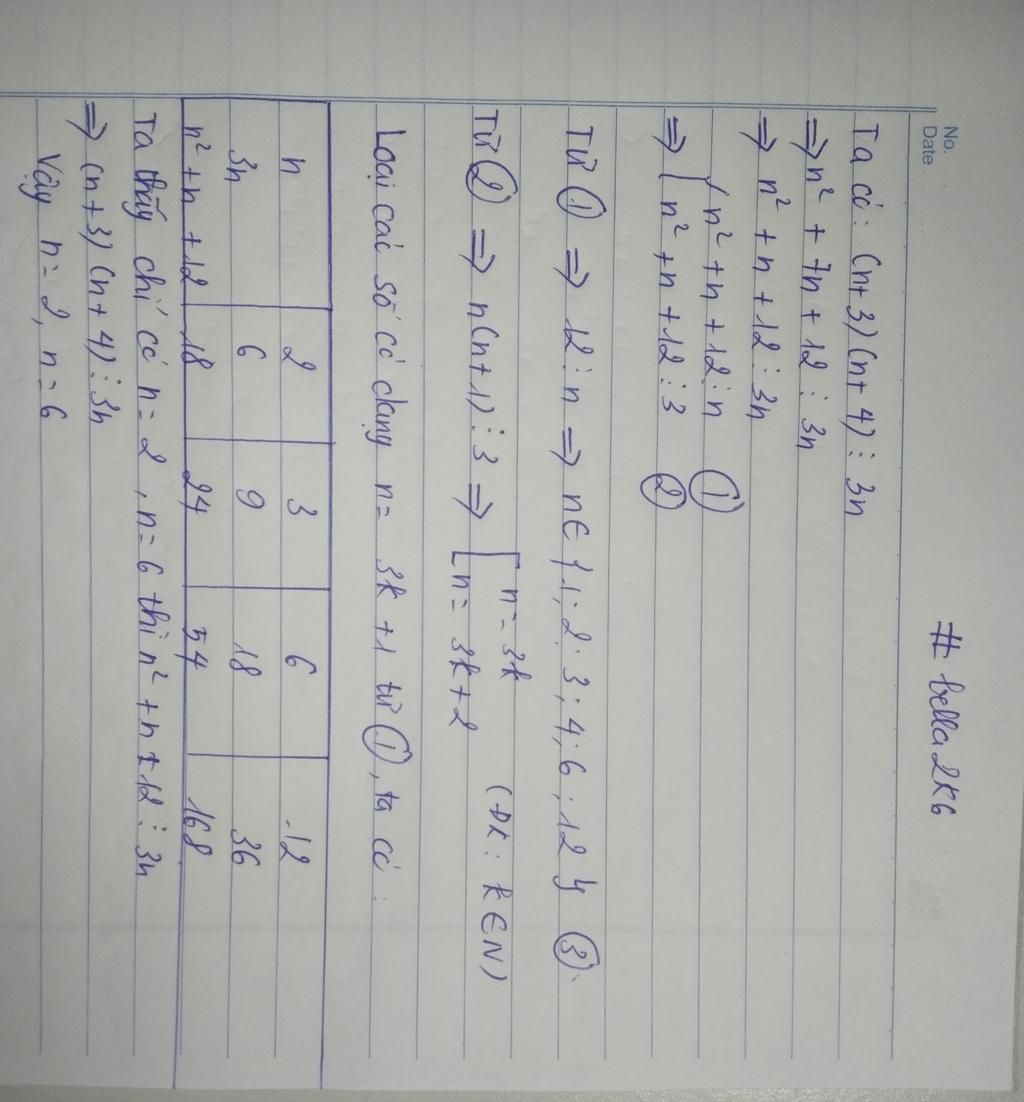 No.
Date
# bella2k6
Ta có: (n+3)(n+4) ⋮ 3n
=> n² + 7n + 12 ⋮ 3n
=> n² + n + 12 ⋮ 3n
=> { n² + n + 12 ⋮ n ①
n² + n + 12 ⋮ 3 ②
Từ ① => 12 ⋮ n => n ∈ {1; 2; 3; 4; 6; 12} ③.
Từ ② => n(n+1) ⋮ 3 => [ n = 3k
n = 3k + 2 (ĐK: k ∈ N)
Loại các số có dạng n = 3k + 1 từ ①, ta có:
n 2 3 6 12
3n 6 9 18 36
n² + n + 12 18 24 54 168
Ta thấy chỉ có n = 2, n = 6 thì n² + n + 12 ⋮ 3n
=> (n+3)(n+4) ⋮ 3n
Vậy n = 2, n = 6